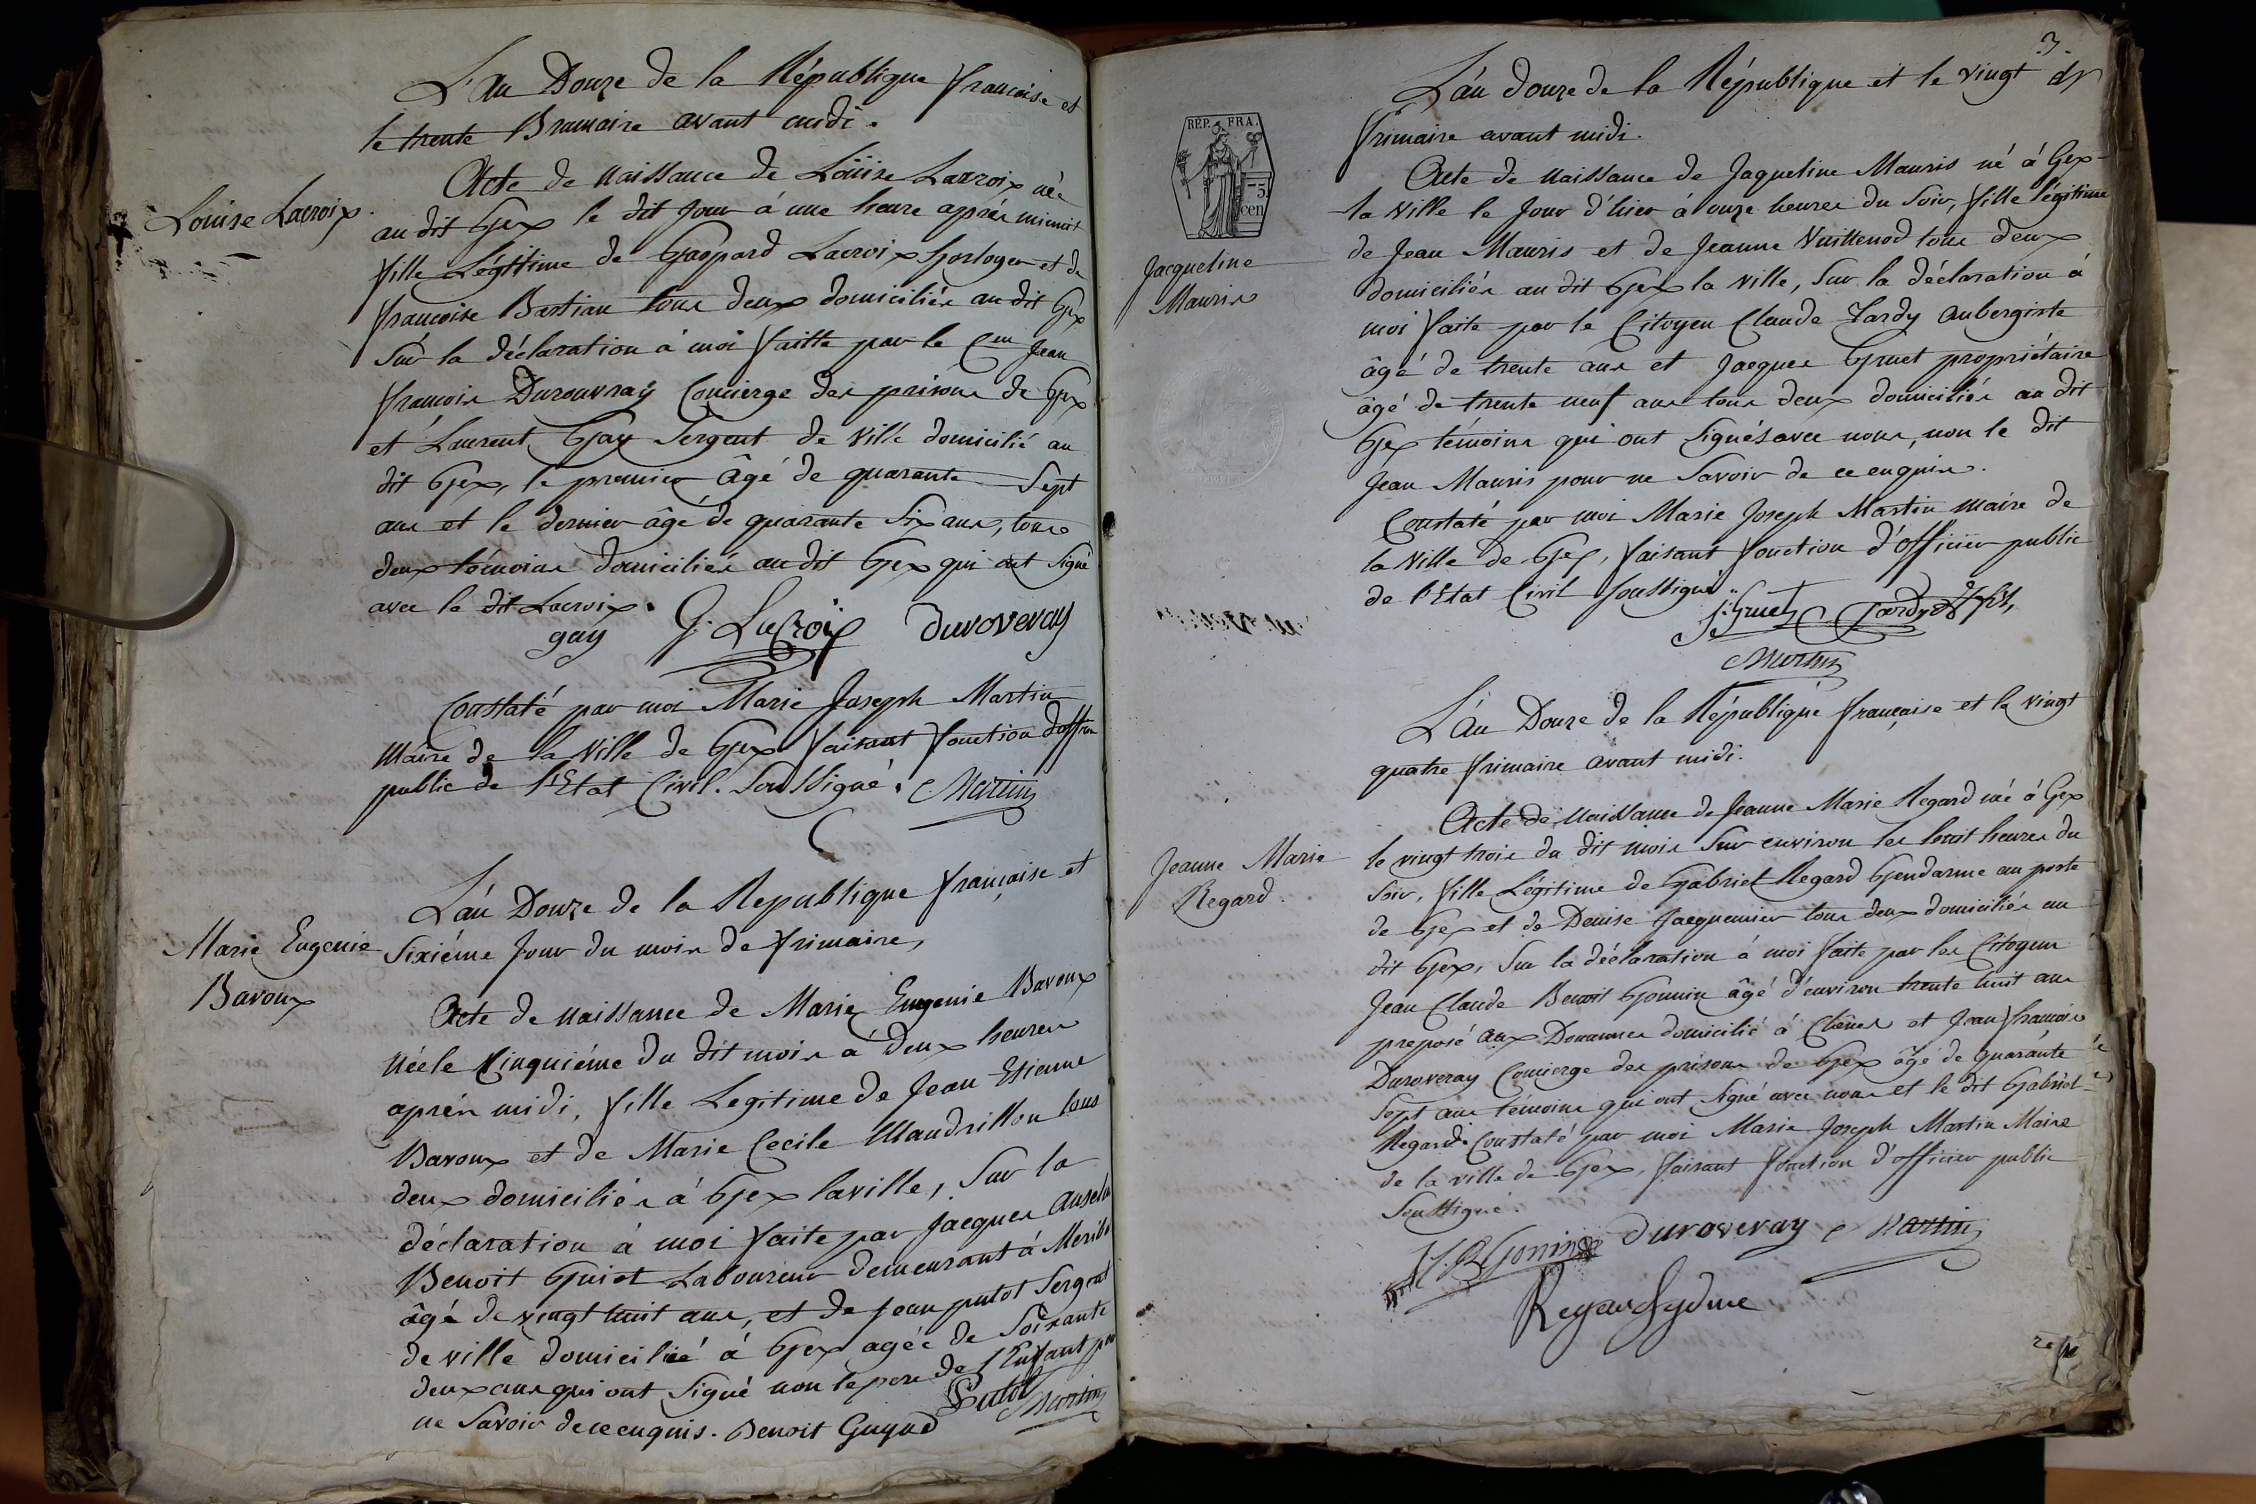 L'an Douze de la République francaise et
le trente Brumaire avant midi.
Louise Lacroix.
Acte de naissance de Loüise Lacroix née
au dit Gex le dit Jour à une heure après minuit
fille Légitime de Gaspard Lacroix horloger et de
francoise Bastian tous deux domiciliés au dit Gex
Sur la déclaration à moi faitte par le Cen Jean
francois Durouvray Concierge des prisons de Gex
et Laurent Gay Sergent de Ville domicilié au
dit Gex, le premier âgé de quarante Sept
ans et le dernier âgé de quarante Six ans, tous
deux témoins domiciliés au dit Gex qui ont Signé
avec le dit Lacroix.
gay G. LaCroix Duroveray
Constaté par moi Marie Joseph Martin
Maire de la Ville de Gex faisant fonction
public de l'Etat Civil. Soussigné. Martin
L'an Douze de la Republique française et
Marie Eugenie
Bavoux
Sixiéme Jour du mois de frimaire,
Acte de naissance de Marie Eugenie Bavoux
Née le Cinquiéme du dit mois à deux heures
après midi, fille Legitime de Jean Etienne
Bavoux et de Marie Cecile Mandrillon tous
deux domiciliés à Gex la ville, Sur la
déclaration à moi faite par Jacques
Benoit Guiet Laboureur demeurant à
âgé de vingt huit ans, et de Jean putot Sergent
de ville domicilié à Gex agée de Soixante
deux ans qui ont Signé non le pere de l'Enfant pour
ne Savoir de ce enquis. Benoit Guyad
Putot Martin
3.
L'an douze de la République et le vingt
frimaire avant midi.
REP. FRA.
cen
Jacqueline
Mauris
Acte de naissance de Jaqueline Mauris né à Gex
la Ville le Jour d'hier à onze heures du Soir, fille légitime
de Jean Mauris et de Jeanne Vuillenod tous deux
domiciliés au dit Gex la Ville, Sur la déclaration à
moi faite par le Citoyen Claude Tardy aubergiste
âgé de trente ans et Jacques Gruet propriétaire
âgé de trente neuf ans tous deux domiciliés au dit
Gex témoins qui ont Signés avec nous, non le dit
Jean Mauris pour ne Savoir de ce enquis.
Constaté par moi Marie Joseph Martin Maire de
la Ville de Gex, faisant fonction d'officier public
de l'Etat Civil soussigné.
J: Gruet C. Tardy
Martin
L'an Douze de la République française et le vingt
quatre frimaire avant midi.
Jeanne Marie
Regard.
Acte de naissance de Jeanne Marie Regard née à Gex
le vingt trois du dit mois Sur environ les huit heures du
Soir, fille Légitime de Gabriel Regard Gendarme au poste
de Gex et de Denise Jacquemier tous deux domiciliés au
dit Gex, Sur la déclaration à moi faite par les Citoyens
Jean Claude Benoit Gonnin âgé d'environ trente huit ans
preposé aux Douannes domicilié à Chênes et Jean francois
Duroveray Concierge des prisons de Gex âgé de quarante
Sept ans témoins qui ont Signé avec nous et le dit Gabriel
Regard. Constaté par moi Marie Joseph Martin Maire
de la ville de Gex, faisant fonction d'officier public
Soussigné.
J. C. B Gonin Duroveray Martin
Regard